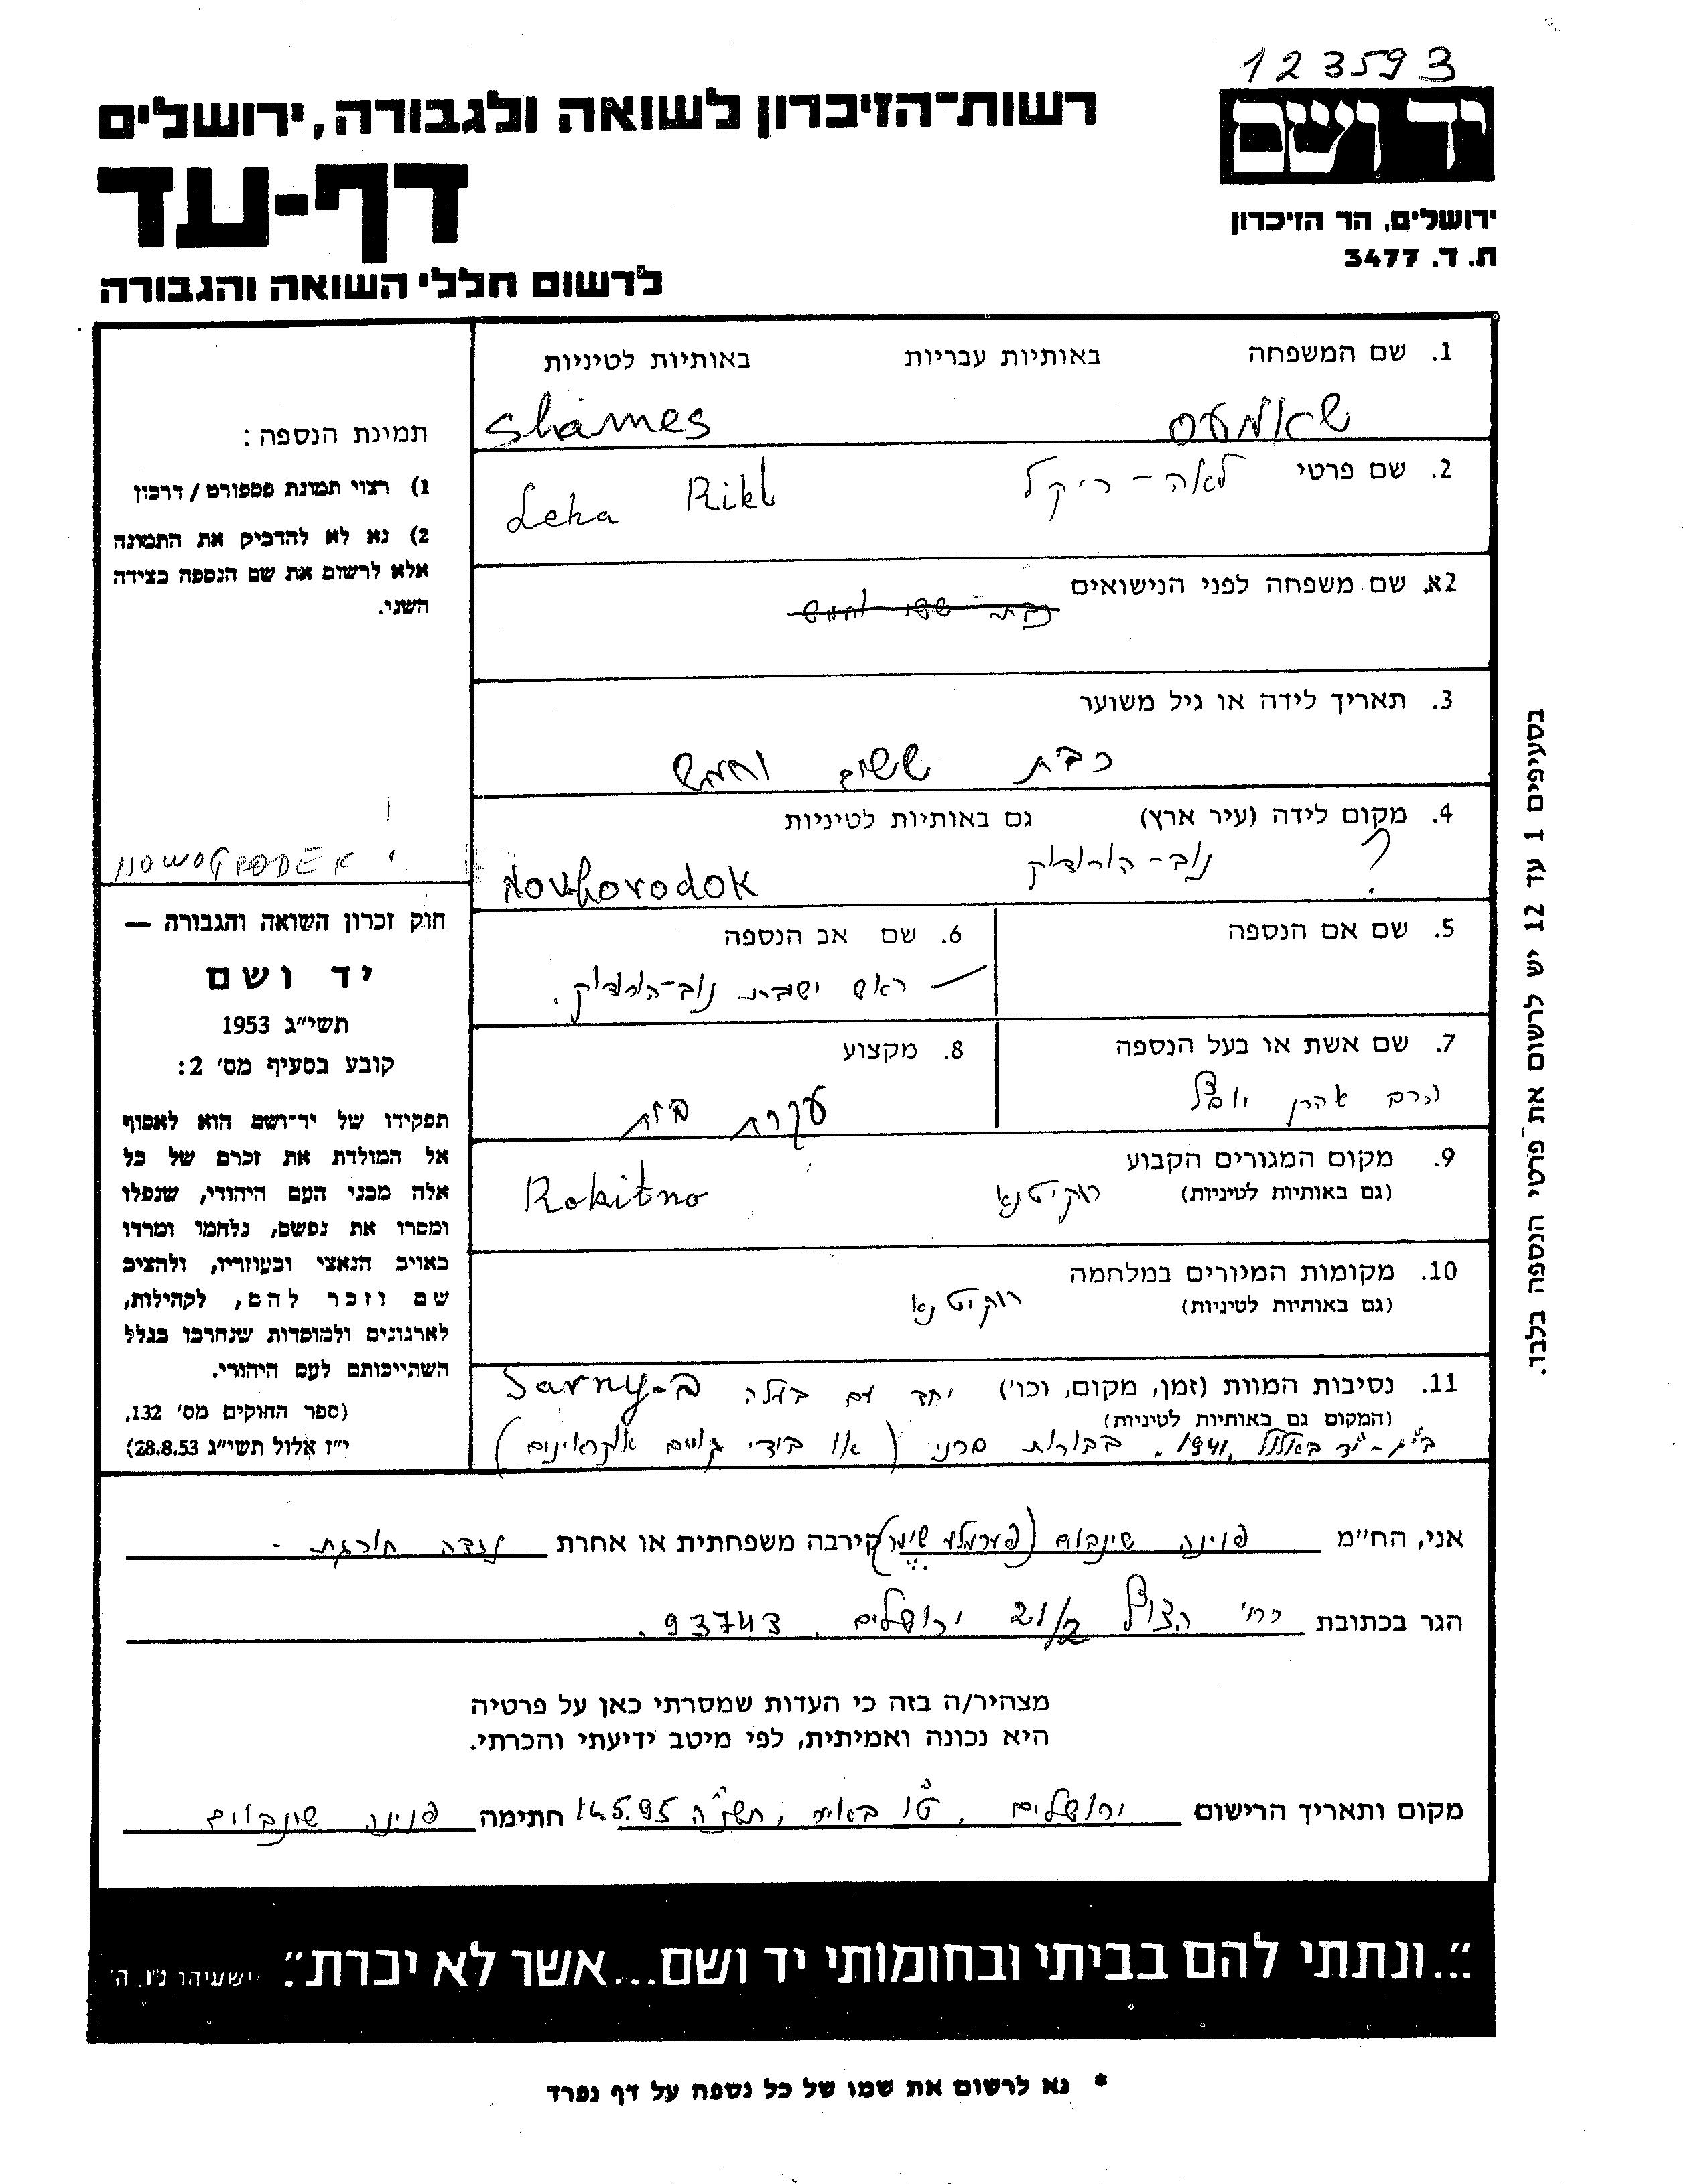 123593
יד ושם
רשות־הזיכרון לשואה ולגבורה, ירושלים
דף-עד
לרשום חללי השואה והגבורה
ירושלים, הר הזיכרון
ת. ד. 3477
1. שם המשפחה באותיות עבריות באותיות לטיניות
שאמעס Shames
2. שם פרטי לאה - ריקל Leha Rikl
2א. שם משפחה לפני הנישואים
3. תאריך לידה או גיל משוער
כבת ששים וחמש
4. מקום לידה (עיר ארץ) גם באותיות לטיניות
? נוב-הורודוק Novhorodok
5. שם אם הנספה
6. שם אב הנספה
ראש ישבת נוב-הורודוק.
7. שם אשת או בעל הנספה
הרב אהרן יוסף
8. מקצוע
עקרת בית
9. מקום המגורים הקבוע
(גם באותיות לטיניות) רוקיטנא Rokitno
10. מקומות המגורים במלחמה
(גם באותיות לטיניות) רוקיטנא
11. נסיבות המוות (זמן, מקום, וכו') יחד עם בעלה ב-Sarny
(המקום גם באותיות לטיניות)
בי"ג - י"ד באלול, 1941. בבורות סרני (או בידי גויים אוקראינים)
תמונת הנספה:
1) רצוי תמונת פספורט / דרכון
2) נא לא להדביק את התמונה
אלא לרשום את שם הנספה בצידה
השני.
NOWOGRODEK
חוק זכרון השואה והגבורה —
יד ושם
תשי״ג 1953
קובע בסעיף מס׳ 2:
תפקידו של יד־ושם הוא לאסוף
אל המולדת את זכרם של כל
אלה מבני העם היהודי, שנפלו
ומסרו את נפשם, נלחמו ומרדו
באויב הנאצי ובעוזריו, ולהציב
שם וזכר להם, לקהילות,
לארגונים ולמוסדות שנחרבו בגלל
השתייכותם לעם היהודי.
(ספר החוקים מס׳ 132,
י״ז אלול תשי״ג 28.8.53)
בסעיפים 1 עד 12 יש לרשום את פרטי הנספה בלבד.
אני, הח״מ פנינה שינבוים קירבה משפחתית או אחרת נכדה חורגת -
הגר בכתובת 21/2 ירושלים, 93743.
מצהיר/ה בזה כי העדות שמסרתי כאן על פרטיה
היא נכונה ואמיתית, לפי מיטב ידיעתי והכרתי.
מקום ותאריך הרישום ירושלים, ט"ו באייר, תשנ"ה 5.95 חתימה פנינה שינבוים
״...ונתתי להם בביתי ובחומותי יד ושם...אשר לא יכרת״. ישעיהו נ״ו, ה׳
* נא לרשום את שמו של כל נספה על דף נפרד